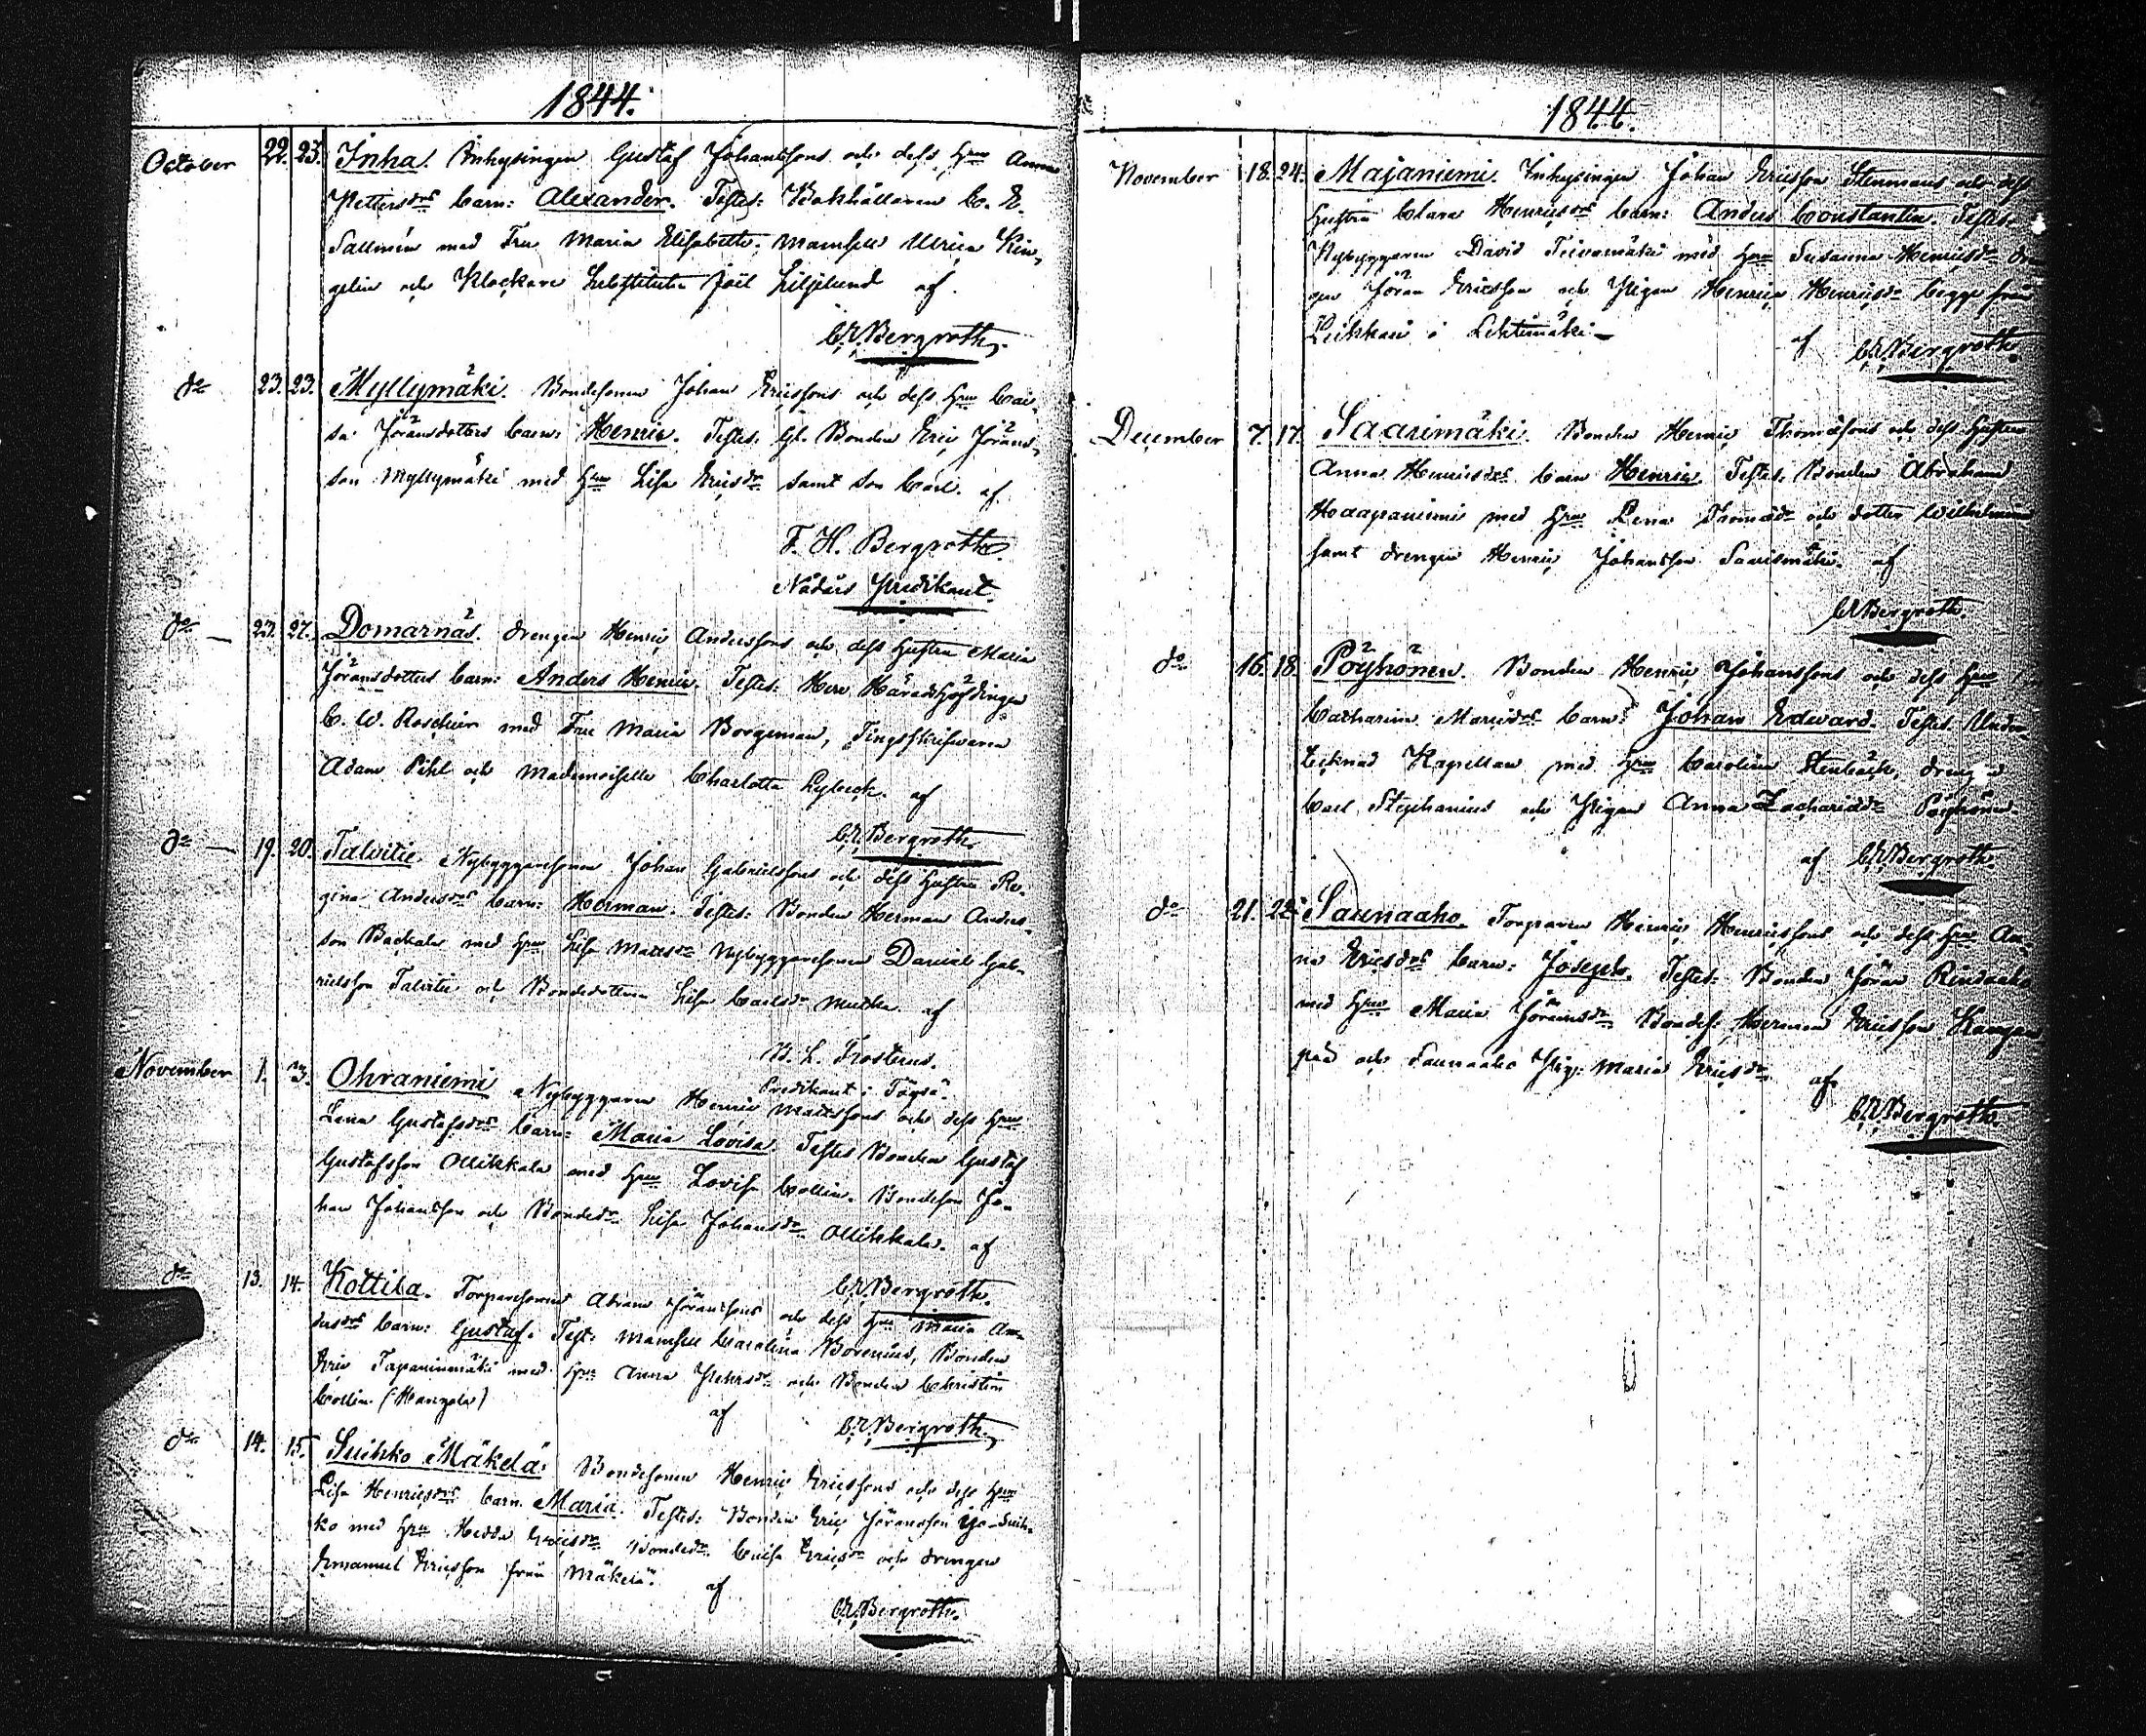 1844.
October 22. 23. Inha. Inhysingen Gustaf Johanssons och dess Hru Anna
Pettersdrs barn: Alexander. Testes: Bokhållaren C. E.
Sallmén med Fru Maria Elisabeth, Mamsell Ulrica Kin-
gelin och Klockare Substituten Joël Liljelund af
C.A. Bergroth.
do 23. 23. Myllymäki. Bondesonen Johan Ericssons och dess Hru Cai-
sa Jöransdotters barn: Henric. Testes: Gl. Bonden Eric Jörans-
son Myllymäki med Hru Lisa Ericsdr samt son Carl. af
F. H. Bergroth
Nådårs Predikant.
do 23. 27. Domarnäs. drengen Henric Anderssons och dess hustru Maria
Jöransdotters barn: Anders Henric. Testes: Herr Häradshöfdingen
C. W. Roschier med Fru Maria Borgeman, Tingsskrifvaren
Adam Pihl och Mademoiselle Charlotta Lybeck. af
C.A. Bergroth.
do 19. 20. Talvitie. Nybyggaresonen Johan Gabrielssons och dess hustru Re-
gina Andersdrs barn: Herman. Testes: Bonden Herman Anders-
son Backala med Hru Lisa Mattsdr Nybyggaresonen Daniel Gab-
rielsson Talvitie och Bondedottren Lisa Carlsdr af
B. L. Frosterus.
Predikant i Töysä.
November 1. 3. Ohraniemi Nybyggaren Henric Mattssons och dess Hru
Lena Gustafsdrs barn: Maria Lovisa. Testes Bonden Gustaf
Gustafsson Ollikkala med Hru Lovisa Collin. Bondeson Jo-
han Johansson och Bondedr Lisa Johansdr Ollikkala. af
C.A. Bergroth.
do 13. 14. Kottila. Torparesonens Abram Jöranssons och dess Hru Maria An-
dersdrs barn: Gustaf. Test: Mamsell Carolina Borenius, Bonden
Eric Tapaninmäki med Hru Anna Pettersdr och Bonden Christian
Collin (Hangola) af
C.A. Bergroth.
do 14. 15. Suihko Mäkelä. Bondesonen Henric Ericssons och dess Hru
Lisa Henricsdrs barn. Maria. Testes: Bonden Eric Jöransson Yo-Suih-
ko med Hru Hedda Ericsdr Bondedr Caisa Ericsdr och drengen
Emanuel Ericsson från Mäkelä. af
C.A. Bergroth.
1844.
November 18. 24. Majaniemi. Inhysingen Johan Ericsson Stenmans och dess
hustru Clara Henricsdrs barn: Anders Constantin. Testes.
Nybyggaren David Teivamäki med Hru Susanna Henricsdr dre-
gen Jöran Ericsson och Pigan Henrica Henricsdr begge från
Leikkari i Lehtimäki af
C.A. Bergroth.
December 7. 17. Saarimäki. Bonden Henric Thomassons och dess hustru
Anna Henricsdrs barn Henric. Testes. Bonden Abraham
Haapaniemi med Hru Lena Thomasdr och dotter Wilhelmina
samt drengen Henric Johansson Saarimäki. af
C.A. Bergroth.
do 16. 18. Pöyhönen. Bonden Henric Johanssons och dess Hru
Catharina Mariusdrs barn: Johan Edward. Testes Under-
tecknad Kapellan med Hru Carolina Stenbäck, drengen
Carl Stephanius och Pigan Anna Zachariadr Pöyhönen.
af C.A. Bergroth.
do 21. 22. Saunaaho. Torparen Henric Henricssons och dess Hru An-
na Ericsdrs barn: Joseph. Testes: Bonden Jöran Rindaaho
med Hru Maria Jöransdr Bondes: Herman Ericsson Kangas-
pää och Saunaaho Pig: Maria Ericsdr af
C.A. Bergroth.